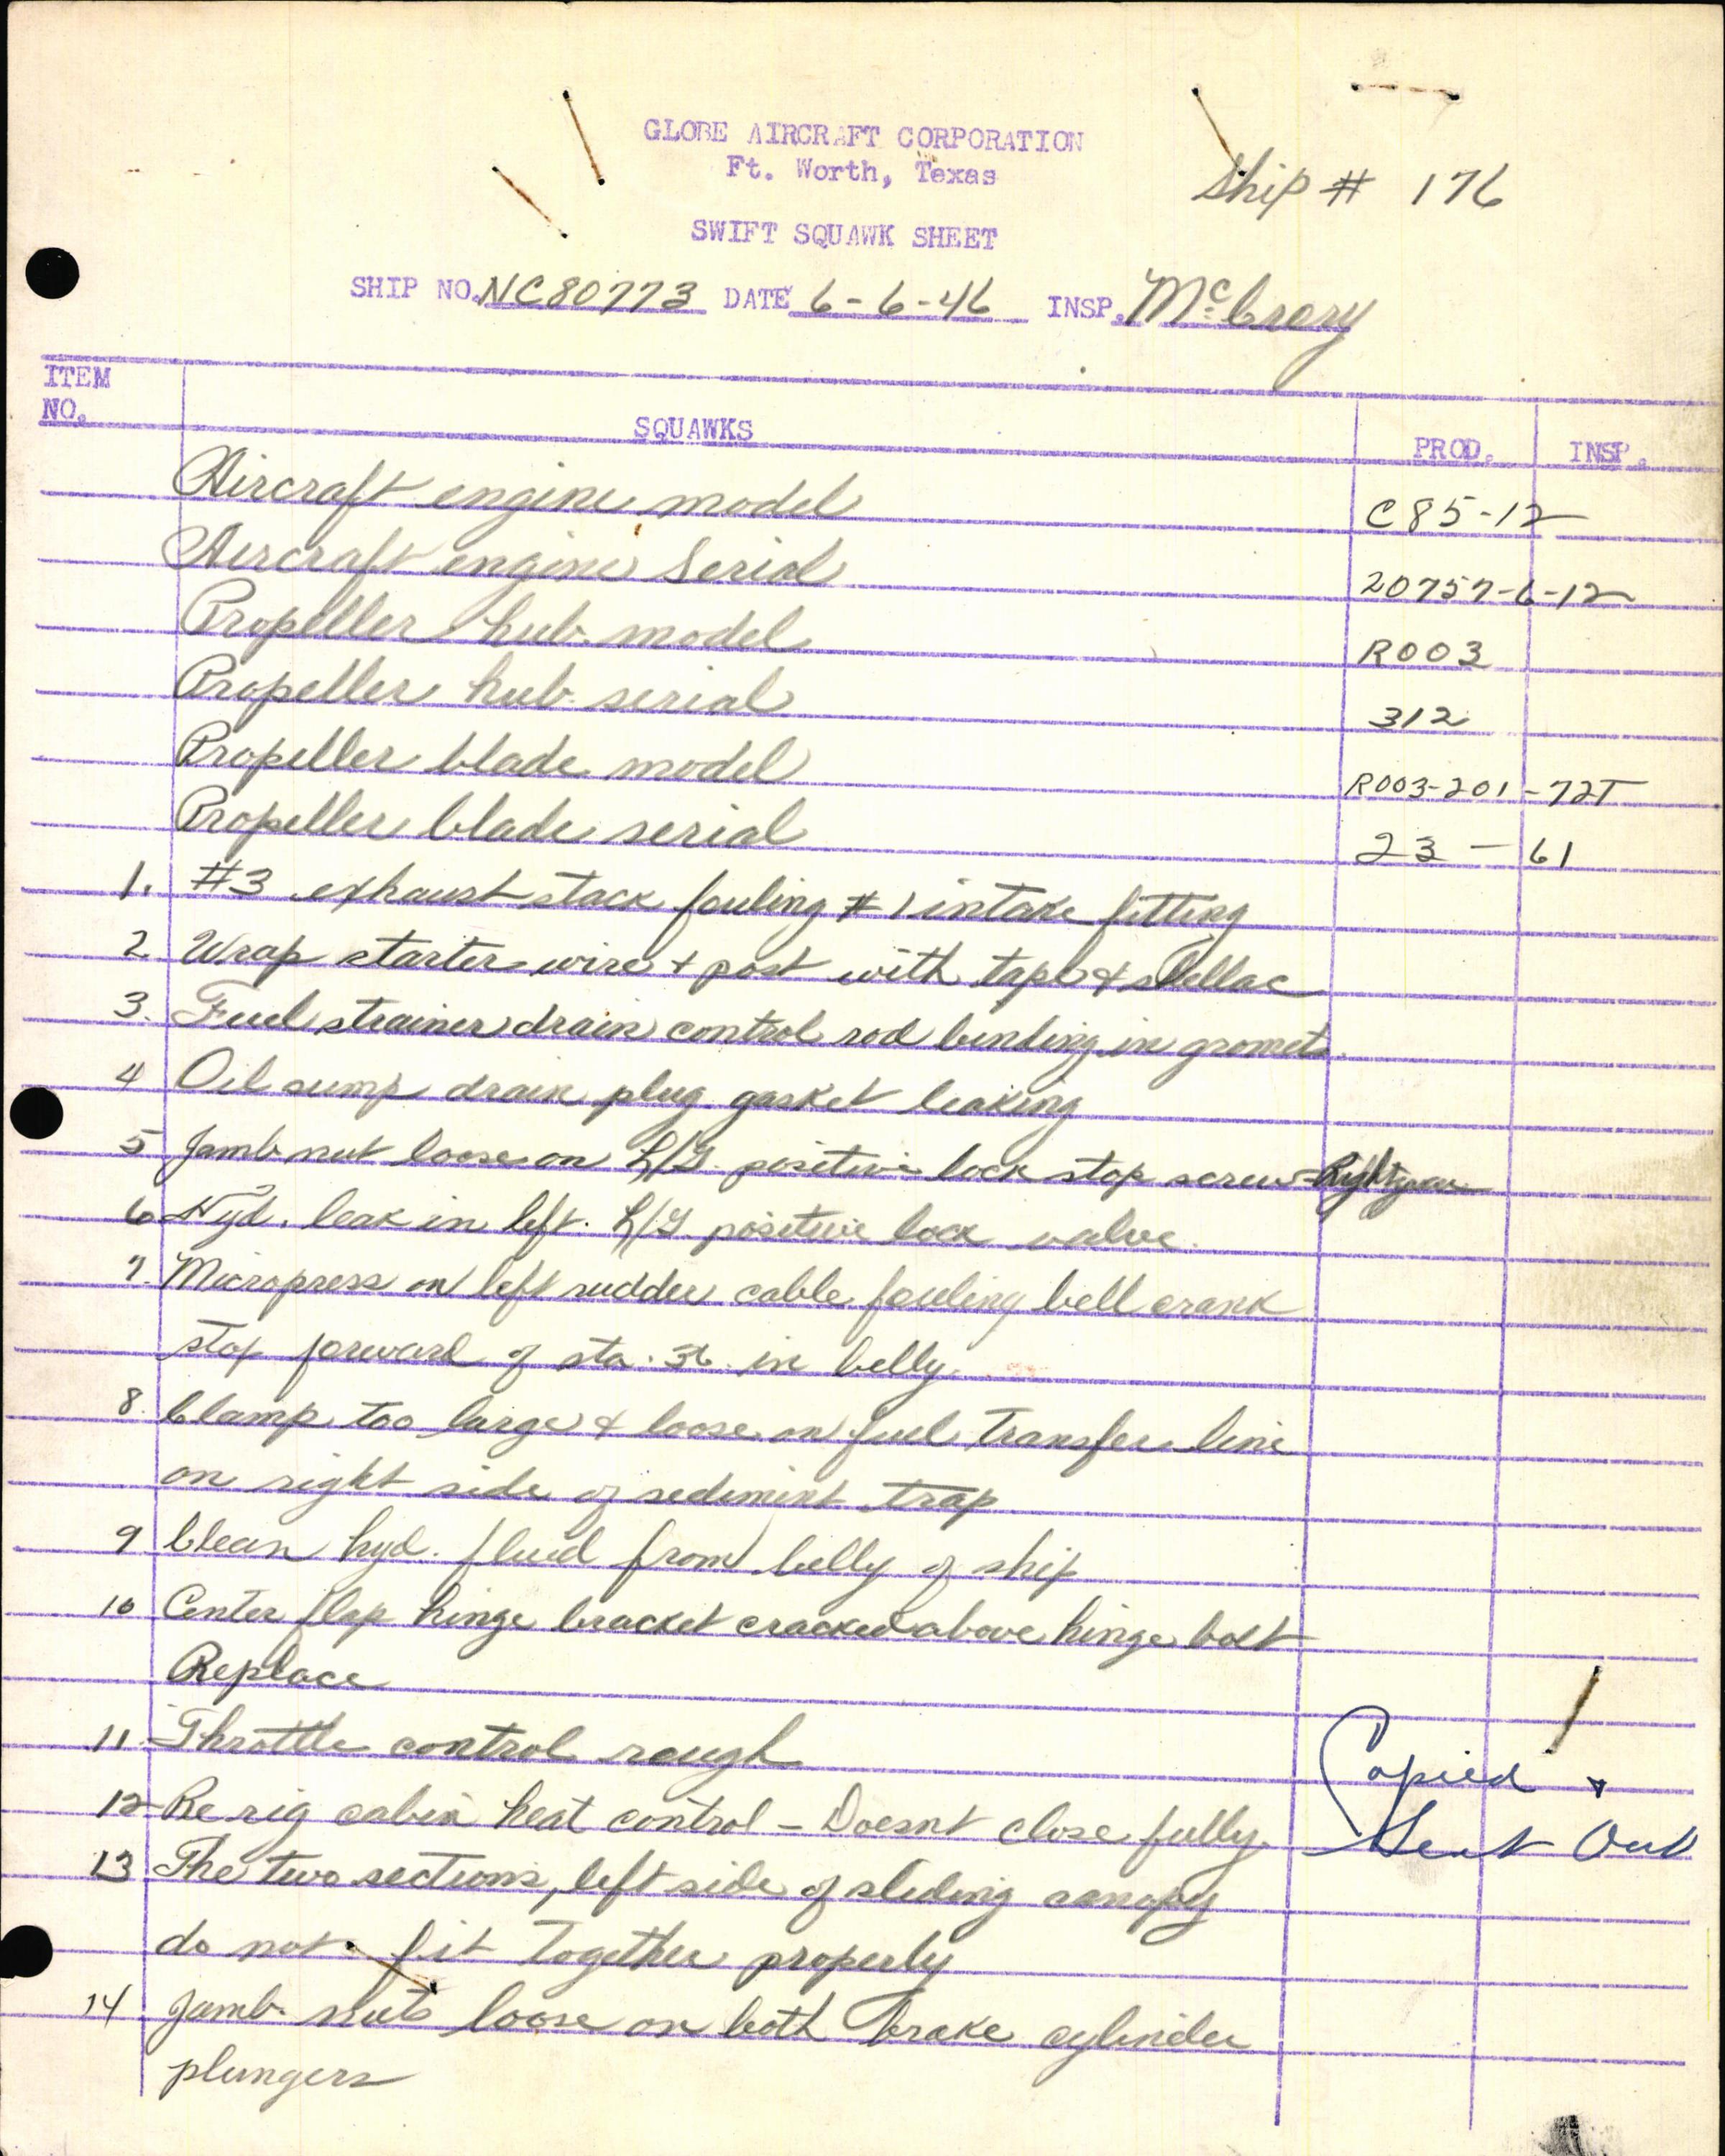 GLOBE AIRCRAFT CORPORATION
Ft. Worth, Texas
Ship # 176
SWIFT SQUAWK SHEET
SHIP NO. NC80773 DATE 6-6-46 INSP. McCrary
ITEM NO. SQUAWKS PROD. INSP.
Aircraft engine model C85-12
Aircraft engine Serial 20757-6-12
Propeller hub model R003
Propeller hub serial 312
Propeller blade model R003-201-72T
Propeller blade serial 23 - 61
1. #3 exhaust stack fouling #1 intake fitting
2 Wrap starter wire + post with tape & shellac
3. Fuel strainer drain control rod binding in gromets.
4 Oil sump drain plug gasket leaking
5 Jamb nut loose on L/G. positive lock stop screw - Right gear
6 Hyd. leak in left. L/G. positive lock valve.
7. Micropress on left rudder cable fouling bell crank
stop forward of sta. 36 in belly.
8. Clamp too large & loose on fuel transfer line
on right side of sediment trap
9 Clean hyd. fluid from belly of ship
10 Center flap hinge bracket cracked above hinge bolt
Replace
11. Throttle control rough
12 Re rig cabin heat control - Doesnt close fully.
Copied +
Sent Out
13 The two sections, left side of sliding canopy
do not fit together properly
14 Jamb nuts loose on both brake cylinder
plungers